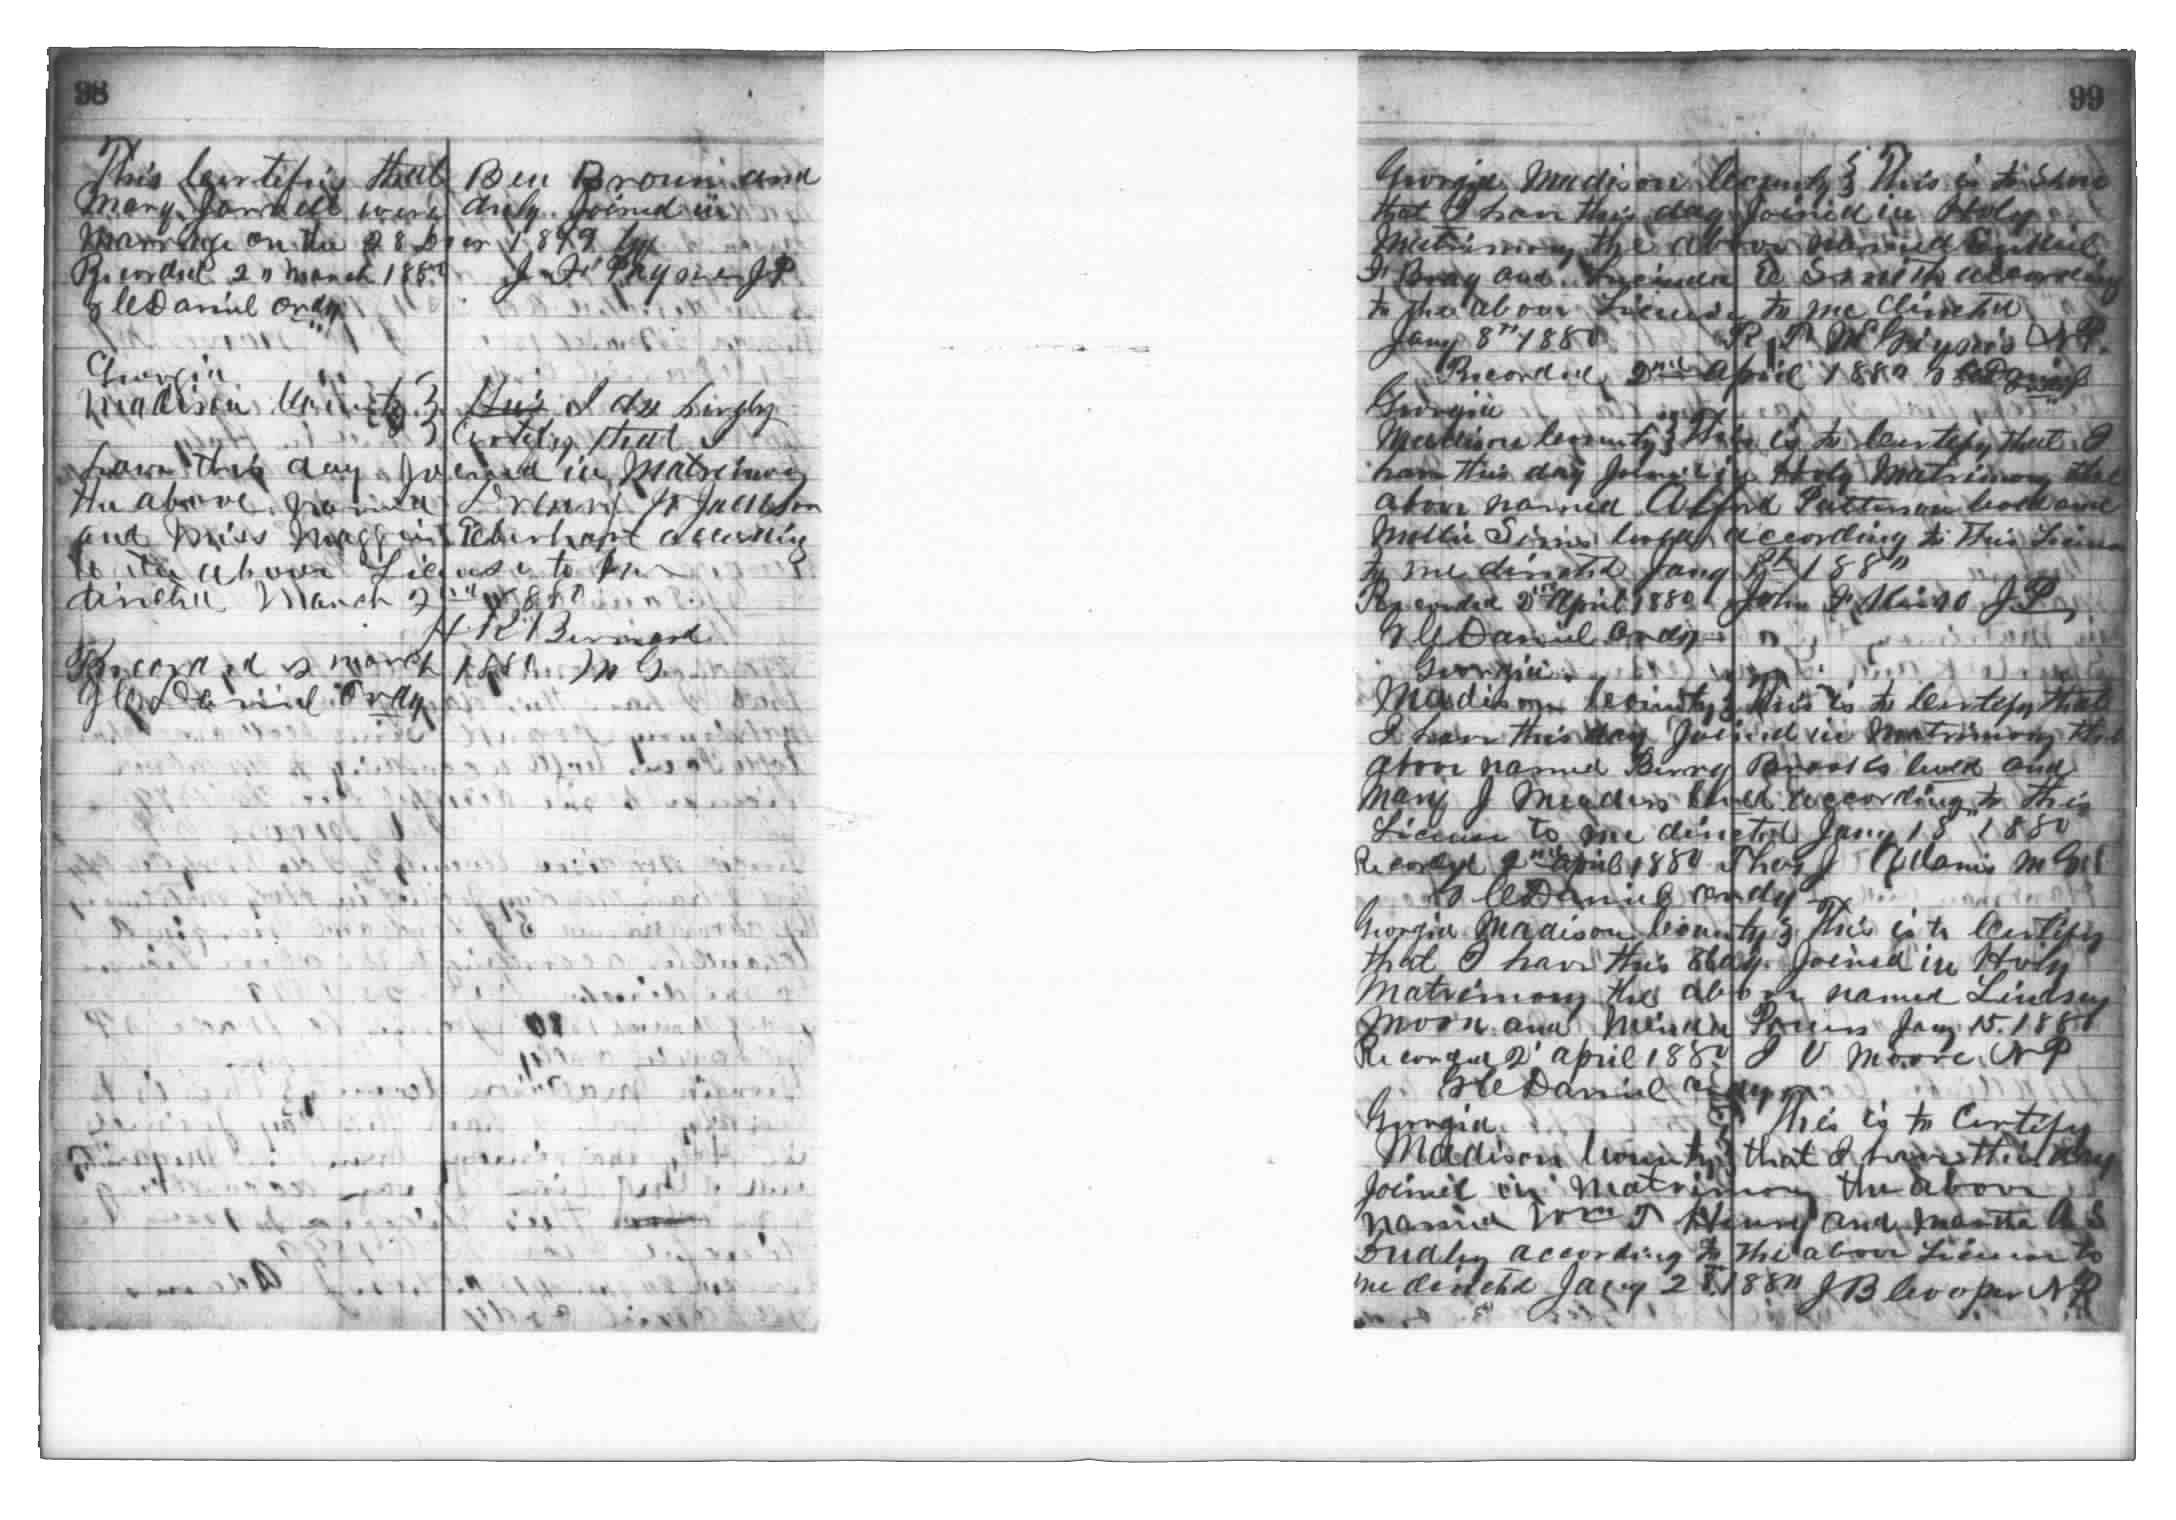 98
This Certifies that Ben Brown and
Mary Jarrell were duly Joined in
Marriage on the 28 Decr 1879 by
Recorded 2" March 1880 J F Payne JP
G C Daniel Ordy
Georgia
Madison County This I do hirely
Certify that I
have this day Joined in Matrimony
the above named W Jackson
and Miss Maggie Eberhart according
to the above License to me
directed March 2nd 1880
H R Bernard
Recorded March 1880 M G
G C Daniel Ordy
99
Georgia Madison County This is to Show
that I have this day Joined in Holy
Matrimony the above named
F Bray and Lucinda E Smith according
to the above License to me directed
Jany 8" 1880 R P McGinnis NP.
Recorded 2nd April 1880 G C Daniel
Georgia
Madison County This is to Certify that I
have this day Joined in Holy Matrimony the
above named Alford Patterson Cold and
Mollie Sims Cold according to this License
to me directed Jany 8th 1880
Recorded 2nd April 1880 John F JP
G C Daniel Ordy
Georgia
Madison County This is to Certify that
I have this day Joined in Matrimony the
above named Berry Cold and
Mary J Meadows Cold according to this
License to me directed Jany 18" 1880
Recorded 2nd April 1880 Thos J Adams M G
G C Daniel Ordy
Georgia Madison County This is to Certify
that I have this day Joined in Holy
Matrimony the above named Lindsey
Moon and Power Jany 15. 1880
Recorded 2" April 1880 J V Moore NP
G C Daniel Ordy
Georgia This is to Certify
Madison County that I have this day
Joined in Matrimony the above
named Wm T Henry and Martha A S
Dudley according to the above License to
me directed Jany 1880 J B Cooper NP